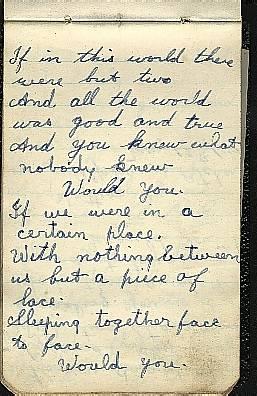 If in this world there
were but two
And all the world
was good and true
And you knew what
nobody knew
Would you.
If we were in a
certain place.
With nothing between
us but a piece of
lace.
Sleeping together face
to face.
Would you.